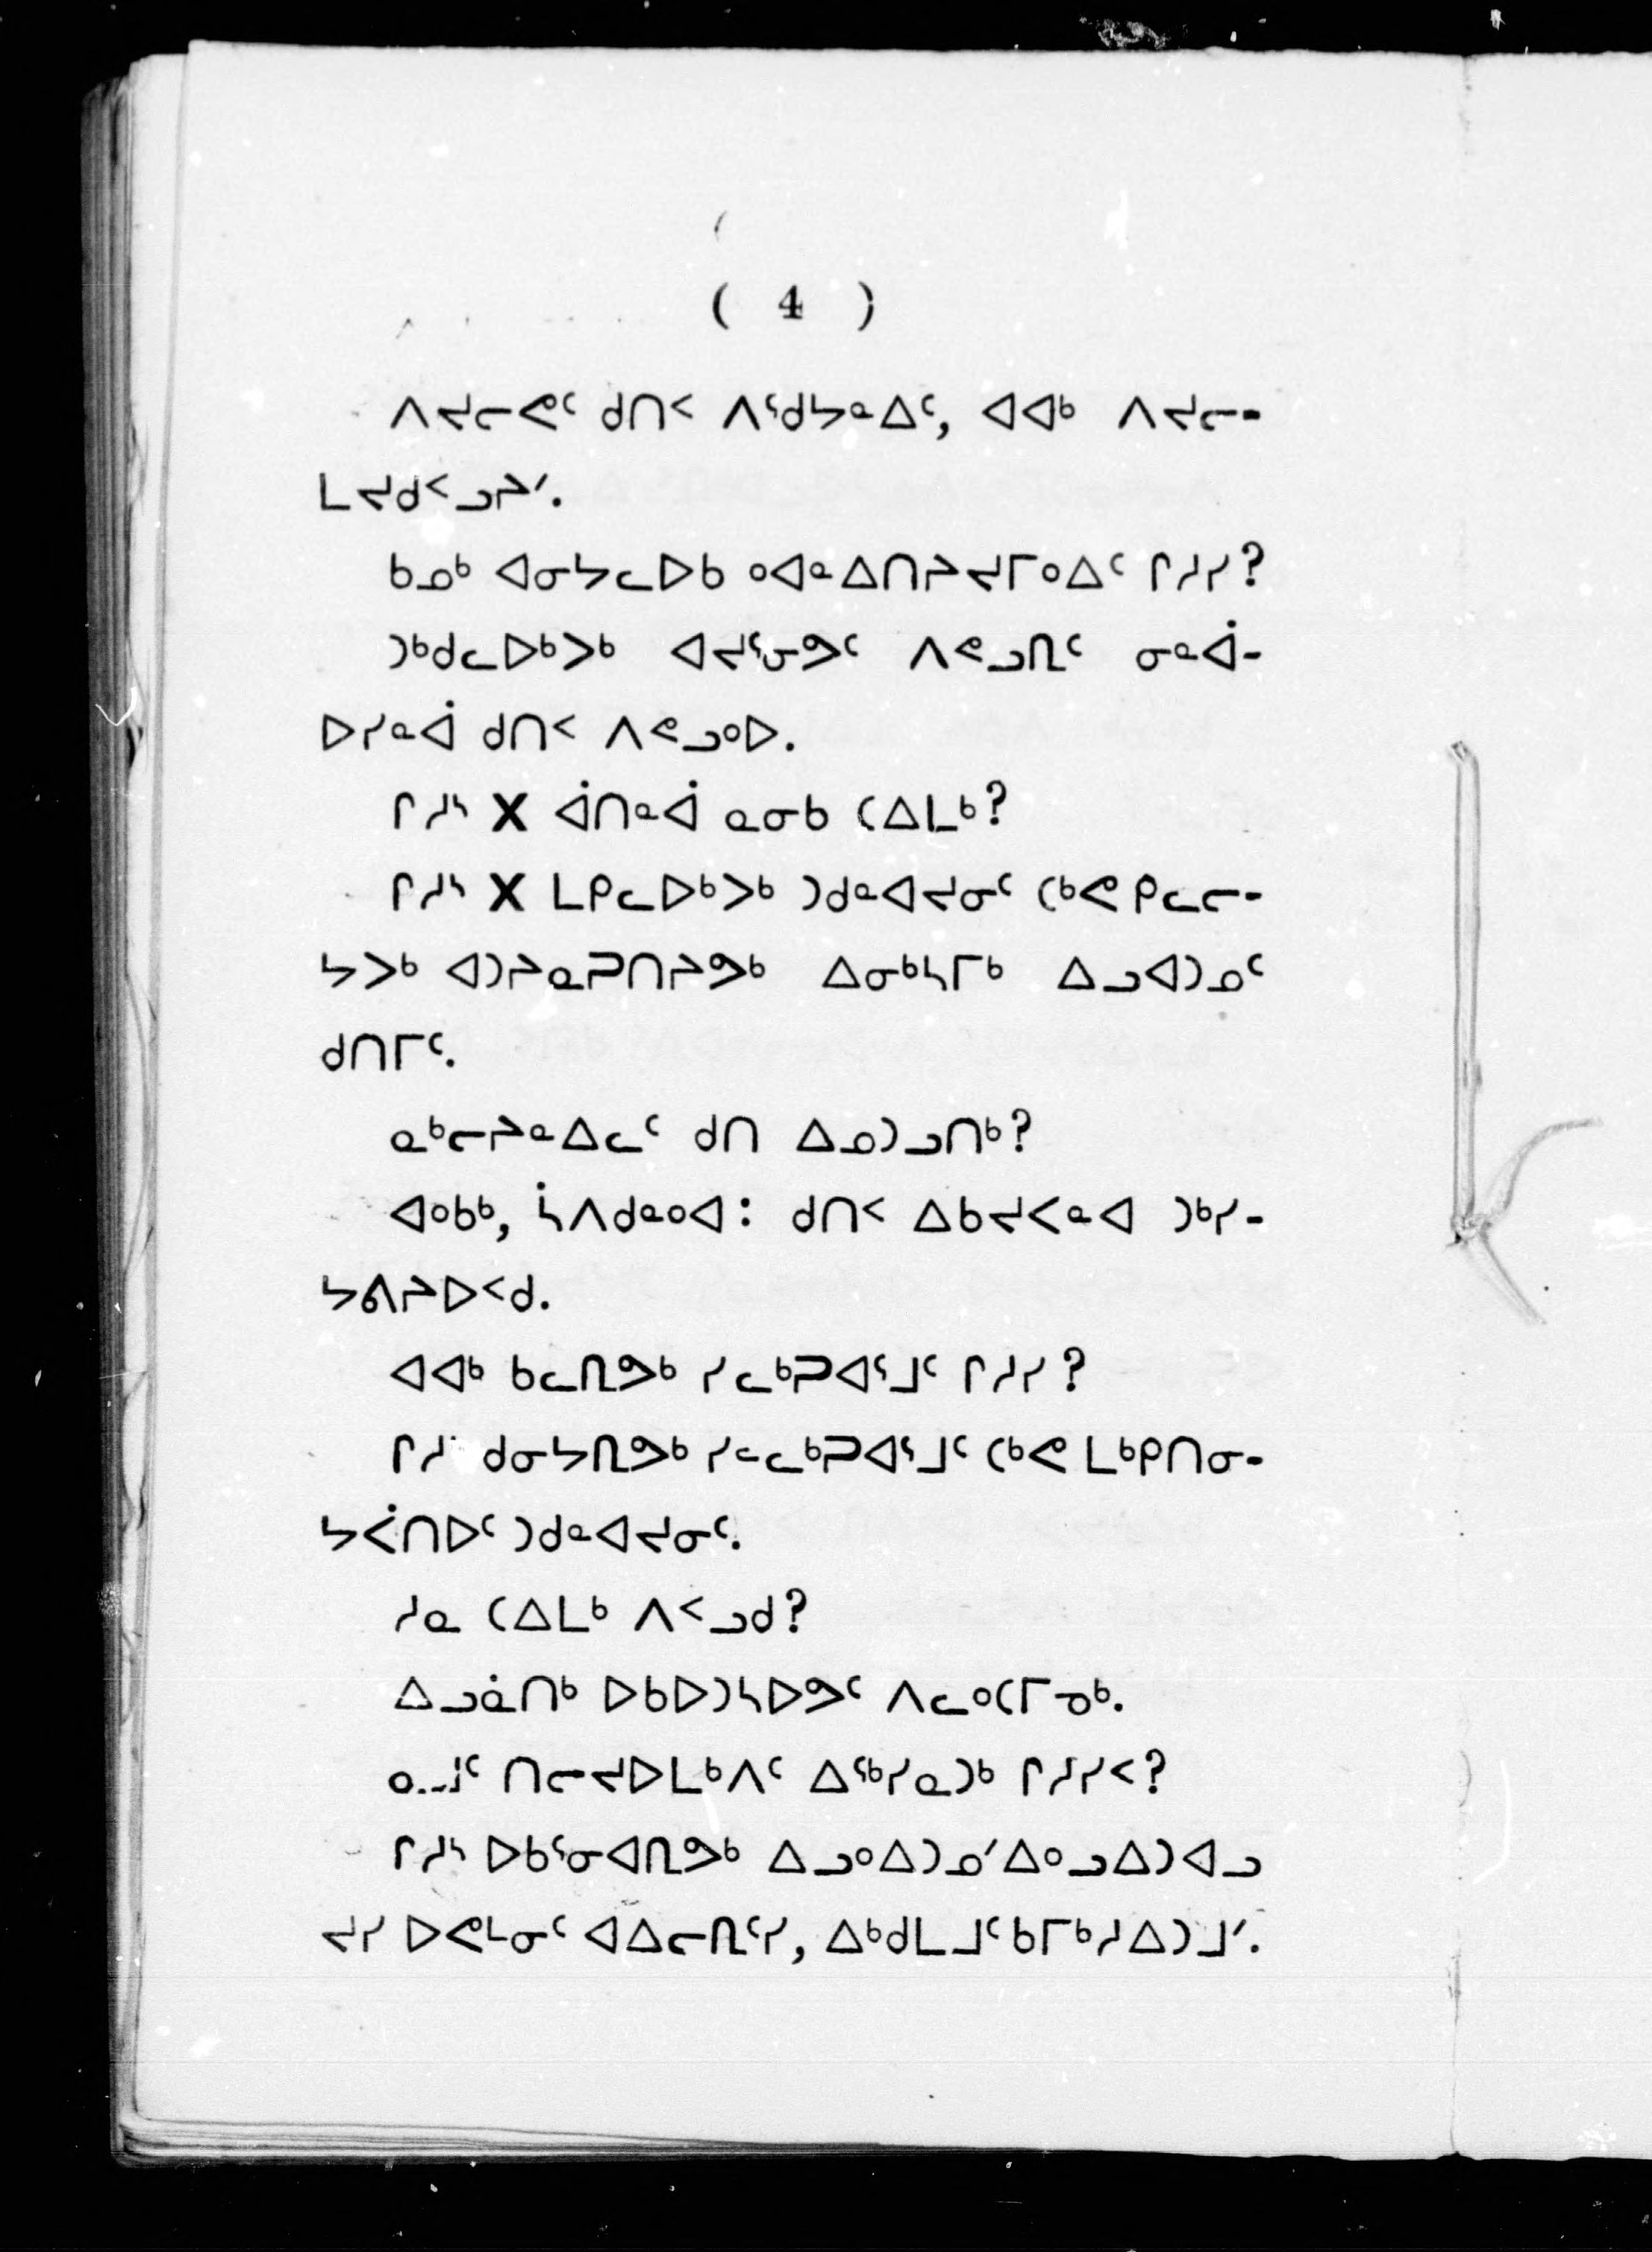 ( 4 )
ᐱᔪᓕᕙᑦ ᑯᑎᑉ ᐱᕐᑯᔭᓐᐃᑦ, ᐊᐊᒃ ᐱᔪᓕ-
ᒪᔪᑯᑉᓗᔨᑊ.
ᑲᓄᒃ ᐊᓂᔭᓚᐅᑲ ᐤᐊᓐᐃᑎᔨᔪᒥᐤᐃᑦ ᒋᓱᓯ?
ᑐᒃᑯᓚᐅᒃᐳᒃ ᐊᔪᕐᓂᕗᑦ ᐱᕙᓗᒌᑦ ᓂᓐᐋ-
ᐅᓯᓐᐋ ᑯᑎᑉ ᐱᕙᓗᐤᐅ.
ᒋᓱᔅ X ᐋᑎᓐᐋ ᓇᓂᑲ ᑕᐃᒪᒃ?
ᒋᓱᔅ X ᒪᑭᓚᐅᒃᐳᒃ ᑐᑯᓐᐊᔪᓂᑦ ᑕᒃᕙ ᑭᓚᓕ-
ᔭᐳᒃ ᐊᑐᔨᓇᑐᑎᔨᕗᒃ ᐃᓂᒃᓴᒥᒃ ᐃᓗᐊᑐᓄᑦ
ᑯᑎᒥᑦ.
ᓇᒃᓕᔨᓐᐃᓚᑦ ᑯᑎ ᐃᓄᑐᓗᑎᒃ?
ᐊᐤᑲᒃ, ᓵᐱᑯᓐᐤᐊ: ᑯᑎᑉ ᐃᑲᔪᐸᓐᐊ ᑐᒃᓯ-
ᔭᕕᔨᐅᑉᑯ.
ᐊᐊᒃ ᑲᓚᒌᕗᒃ ᓯᓚᒃᑐᐊᕐᒧᑦ ᒋᓱᓯ?
ᒋᓱ ᑯᓂᔭᒌᕗᒃ ᓯᓚᒃᑐᐊᕐᒧᑦ ᑕᒃᕙ ᒪᒃᑭᑎᓂ-
ᔭᐹᑎᐅᑦ ᑐᑯᓐᐊᔪᓂᑦ.
ᓱᓇ ᑕᐃᒪᒃ ᐱᑉᓗᑯ?
ᐃᓗᓈᑎᒃ ᐅᑲᐅᑐᓴᐅᕗᑦ ᐱᓚᐤᑕᒥᓄᒃ.
ᑎᓕᔪᐅᒪᒃᐱᑦ ᐃᖅᓯᓇᑐᒃ ᒋᓱᓯᑉ?
ᒋᓱᔅ ᐅᑲᕐᓂᐊᒌᕗᒃ ᐃᓗᐤᐃᑐᓄᑊᐃᐤᓗᐃᑐᐊᓗ
ᔪᓯ ᐅᕙᒻᓂᑦ ᐊᐃᓕᒌᑦᓯ, ᐃᒃᑯᒪᒧᑦ ᑲᒥᒃᓱᐃᑐᒧᑊ.